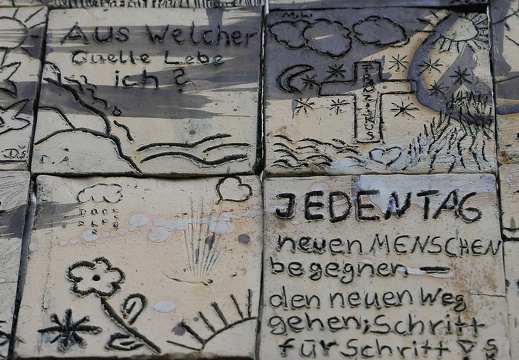 Aus Welcher
Quelle Lebe
ich?
JEDENTAG
neuen MENSCHEN
begegnen
den neuen Weg
gehen; Schritt
für Schritt